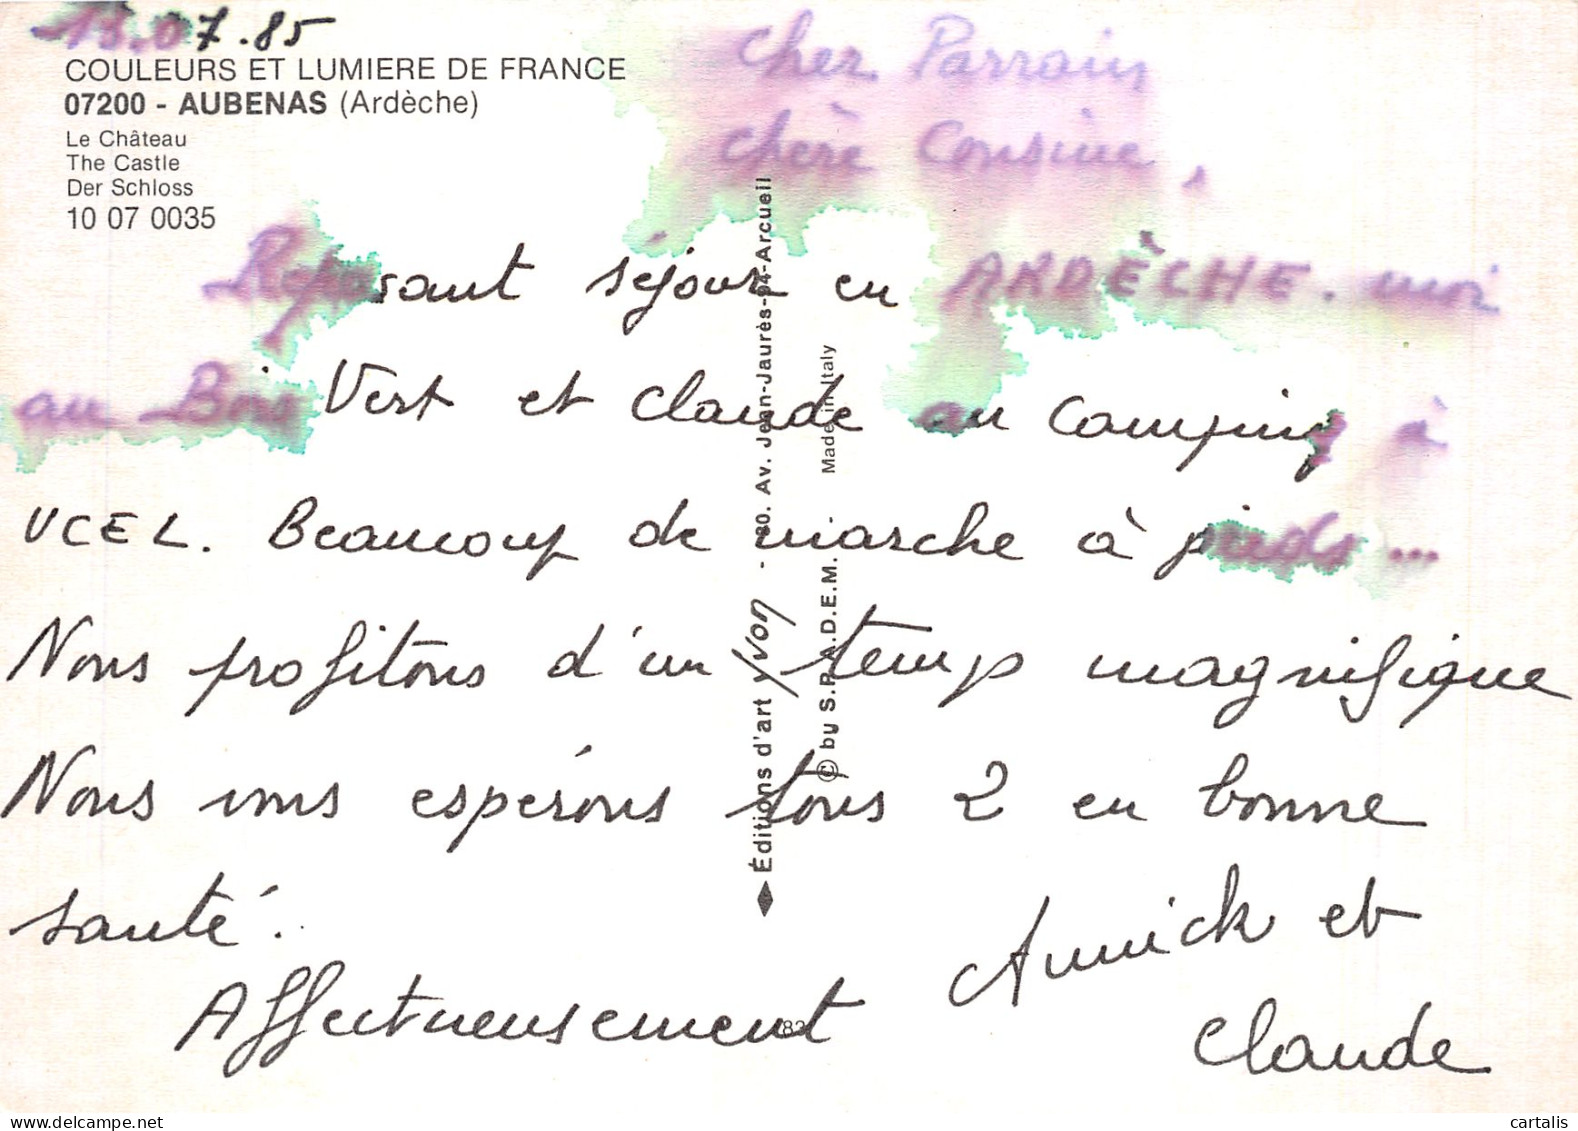 13.07.85
COULEURS ET LUMIERE DE FRANCE
07200 - AUBENAS (Ardèche)
Le Château
The Castle
Der Schloss
10 07 0035
Cher Parrain
chère Cousine,
Reposant séjour en ARDÈCHE. moi
au Bois Vert et Claude au Camping à
UCEL. Beaucoup de marche à pieds...
Nous profitons d'un temps magnifique
Nous vous espérons tous 2 en bonne
santé.
Affectueusement Annick et
Claude
Éditions d'art yvon - 80. Av. Jean-Jaurès-94-Arcueil
© by S.P.A.D.E.M. Made in Italy
82
cartalis